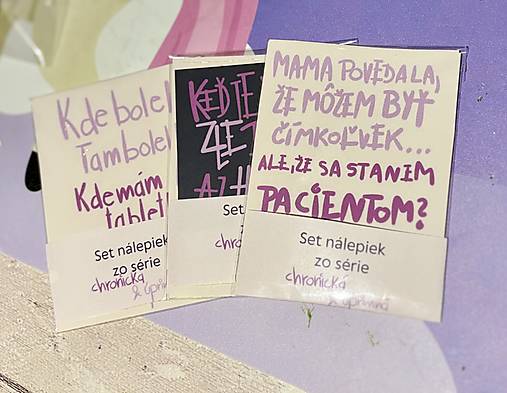 Kde bole
tam bole
Kde mám
tablet
Set nálepiek
zo série
chronická
KEĎ JE
ZLE
AŽ
Set
zo
MAMA POVEDALA,
ŽE MÔŽEM BYŤ
ČÍMKOĽVEK...
ALE, ŽE SA STANEM
PACIENTOM?
Set nálepiek
zo série
chronická
& úprimná